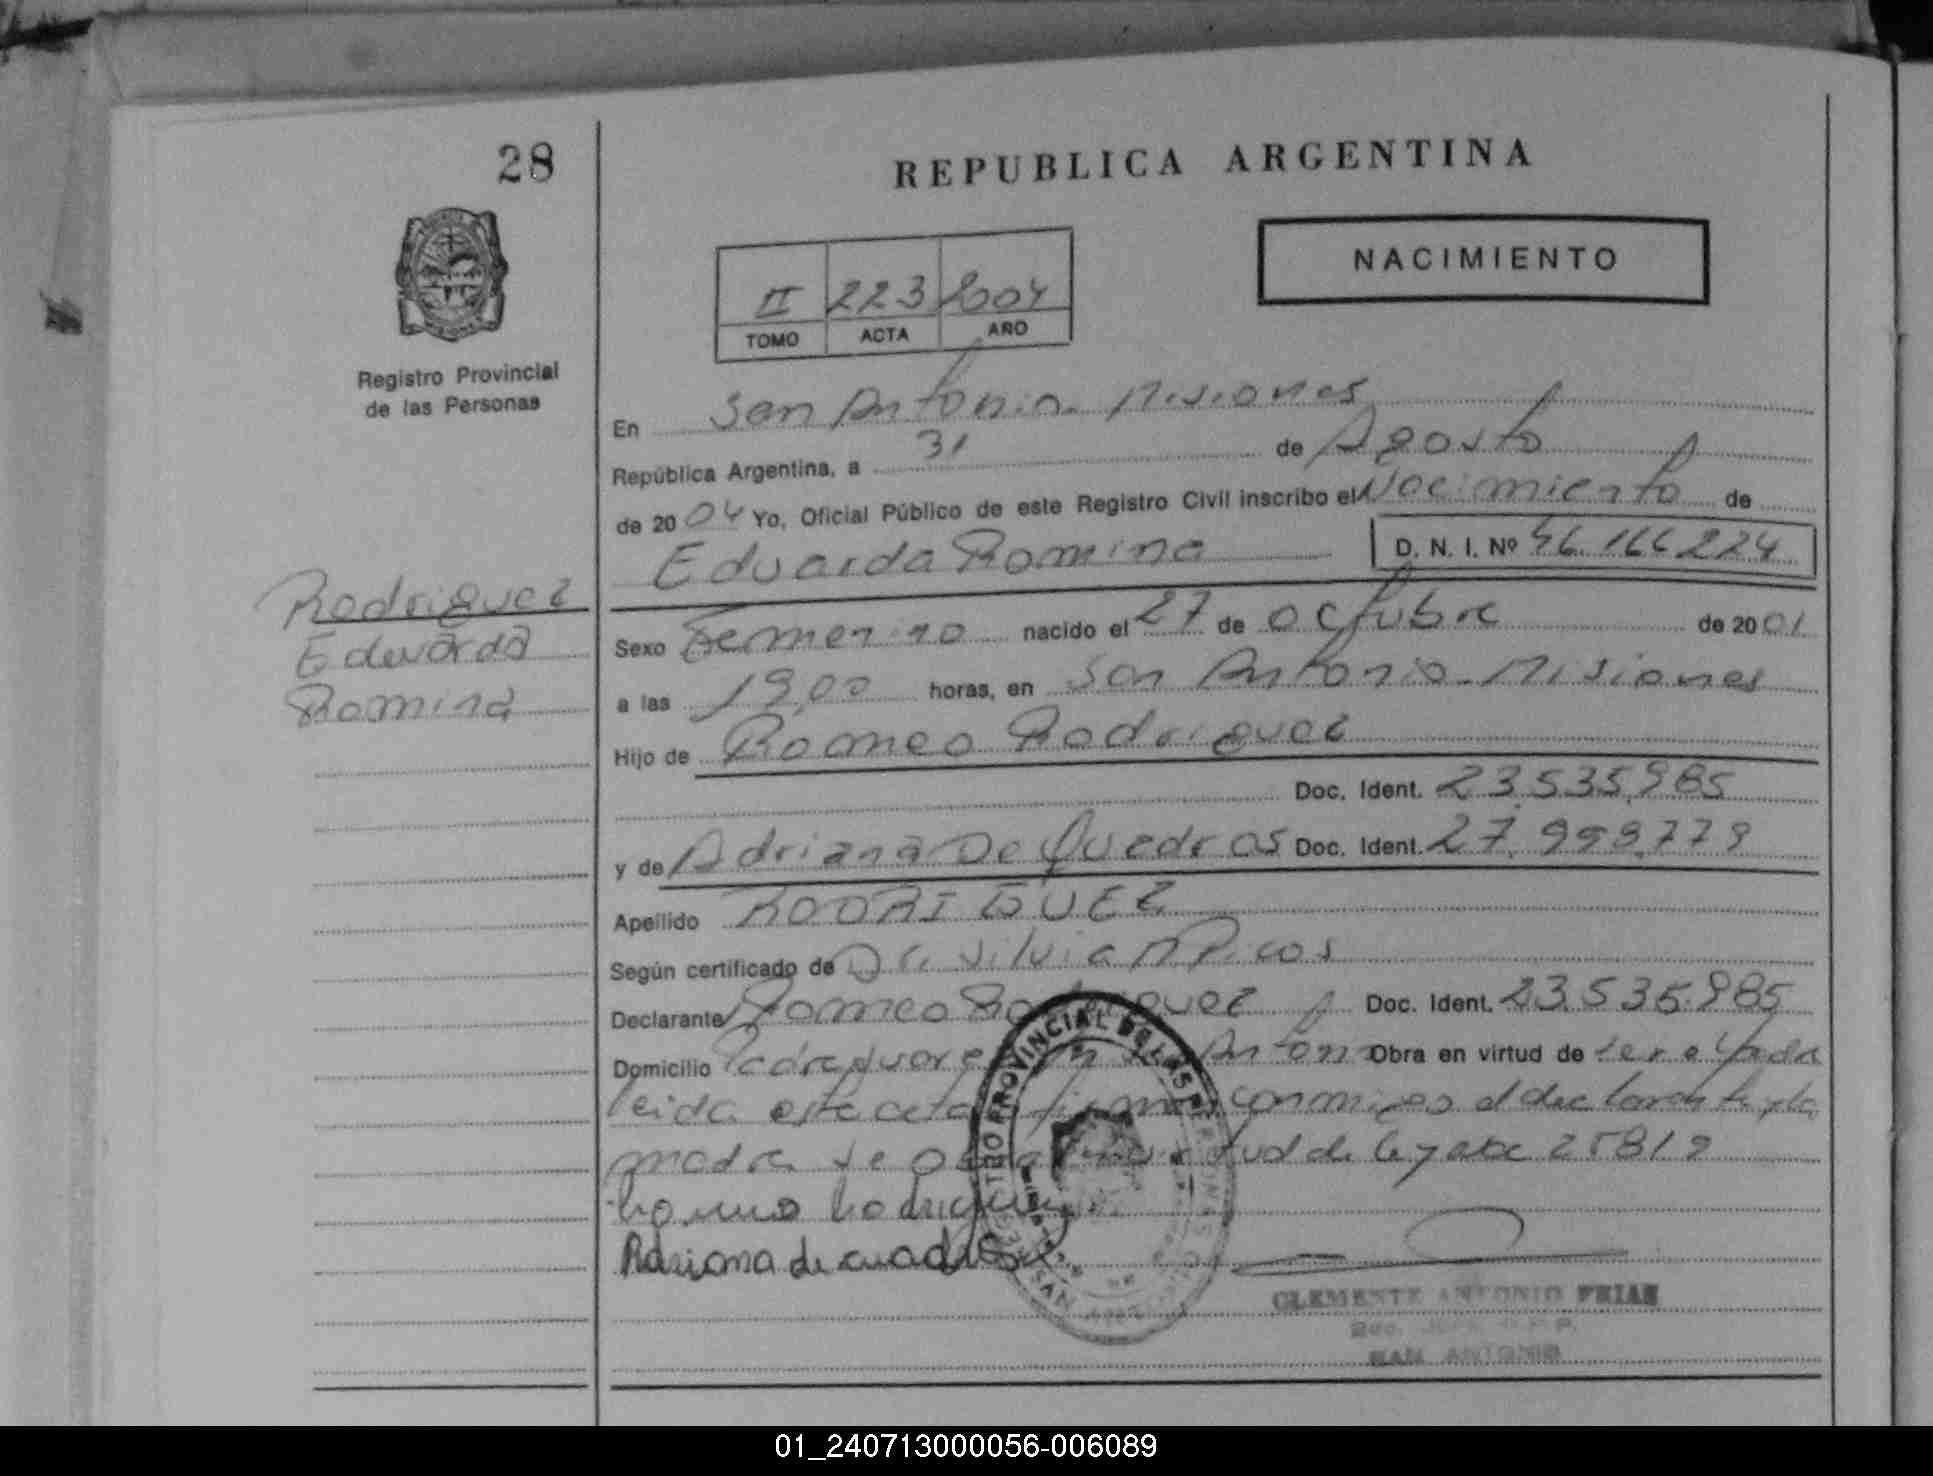 28
REPUBLICA ARGENTINA
NACIMIENTO
II 223 2004
TOMO ACTA AÑO
Registro Provincial
de las Personas
En San Antonio Misiones
República Argentina, a 31 de Agosto
de 2004 Yo, Oficial Público de este Registro Civil inscribo el Nacimiento de
Eduarda Romina D. N. I. Nº 46.166.224
Rodriguez
Eduarda
Romina
Sexo Femenino nacido el 27 de octubre de 2001
a las 19,00 horas, en San Antonio Misiones
Hijo de Romeo Rodriguez
Doc. Ident. 23.535.985
y de Adriana De Quadros Doc. Ident. 27.999.779
Apellido RODRIGUEZ
Según certificado de Dr. Silvia Picos
Declarante Romeo Rodriguez Doc. Ident. 23.535.985
Domicilio San Antonio Obra en virtud de
leida este acta firman conmigo el declarante y la
madre se virtud de ley 25819
Romeo Rodriguez
Adriana de cuadros
REGISTRO PROVINCIAL DE LAS PERSONAS
SAN ANTONIO
CLEMENTE ANTONIO FRIAS
SAN ANTONIO
01_240713000056-006089